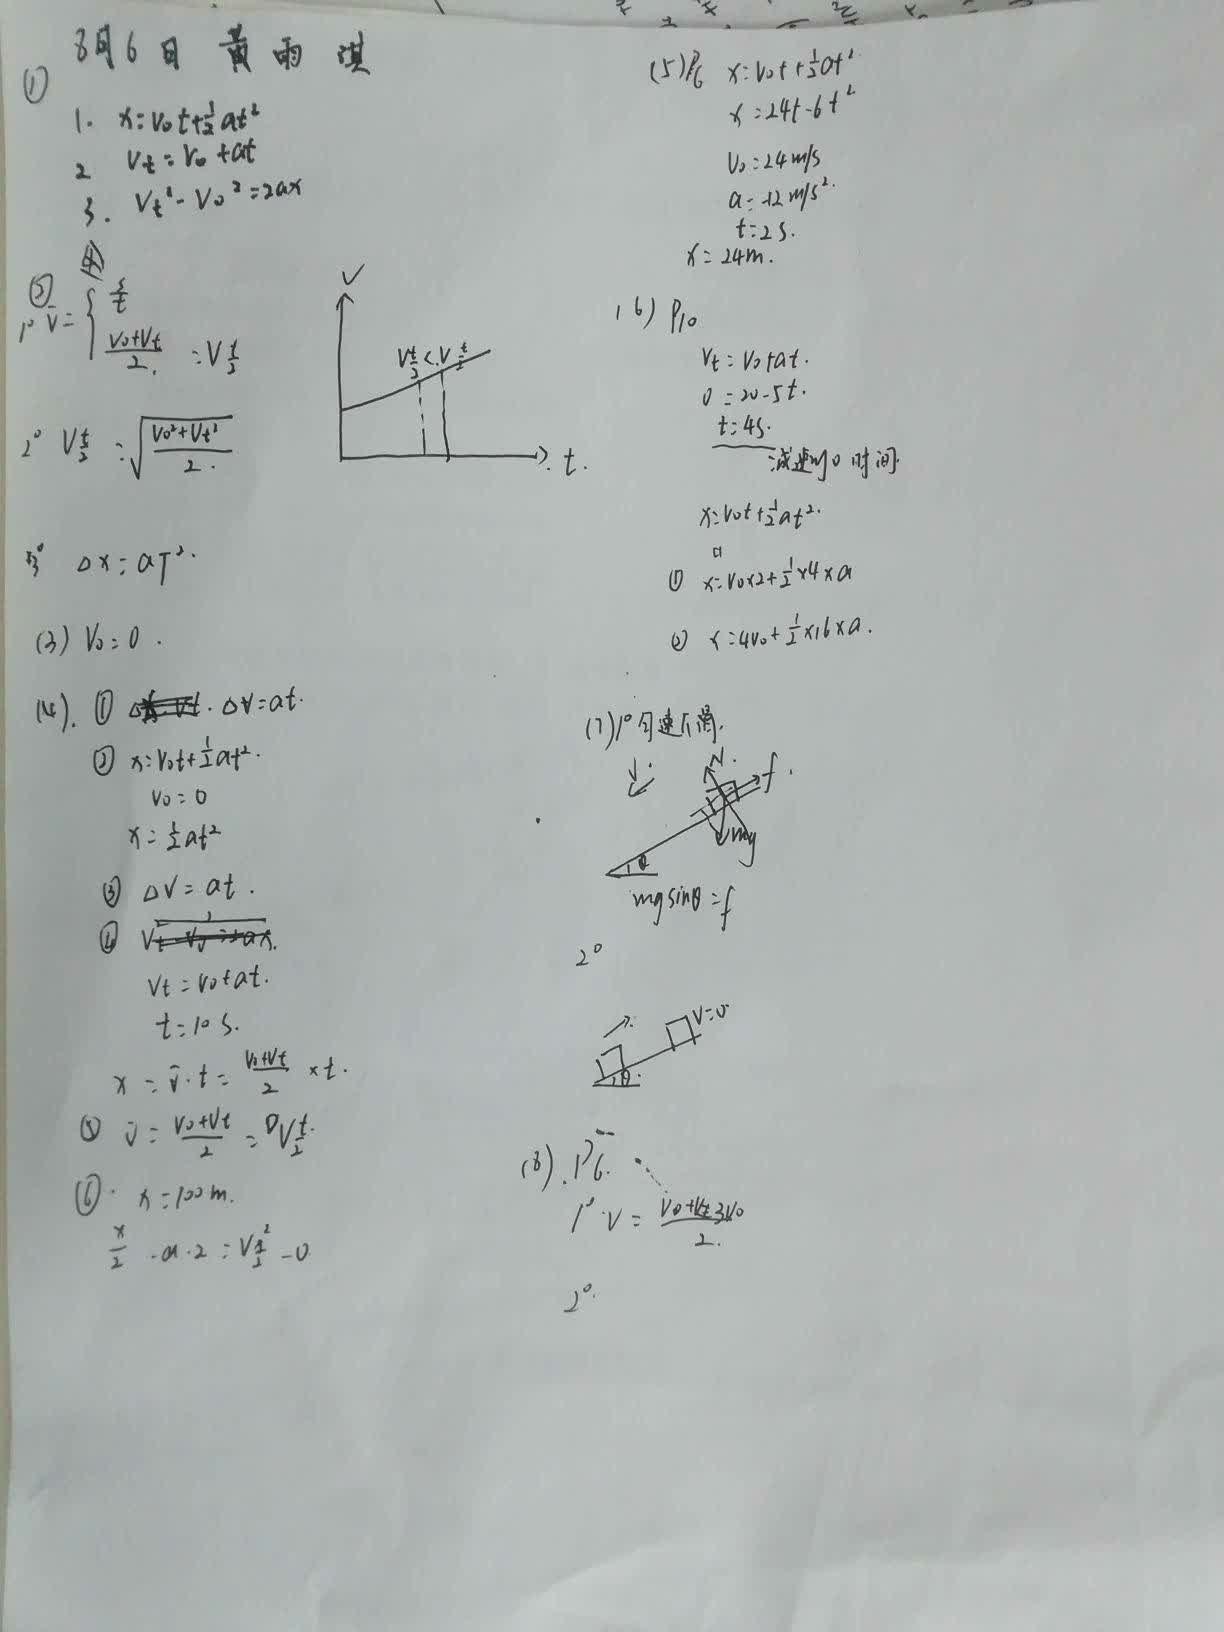 8月6日 黄雨淇
①
1. x=v₀t+½at²
2 Vt=V₀+at
3. Vt²-V₀²=2ax
②
1° v̄={ s/t
(V₀+Vt)/2. =V t/2
2° V t/2 =√((V₀²+Vt²)/2.
V
V t/2 <.V t/2
t.
3° Δx=aT².
(3) V₀=0.
(4). ① ΔV=at.
② x=V₀t+½at².
V₀=0
x=½at²
③ ΔV=at.
④
Vt=V₀+at.
t=10s.
x=v̄·t=(V₀+Vt)/2 ×t.
⑤ v̄=(V₀+Vt)/2 = V t/2.
⑥. x=100m.
x/2 ·a·2=V x/2² -0
(5)P6 x=V₀t+½at²
x=24t-6t²
V₀=24m/s
a=-12m/s².
t=2s.
x=24m.
(6) P10
Vt=V₀+at.
0=20-5t.
t=4s.
减速到0时间.
x=V₀t+½at².
① x=V₀×2+½×4×a
② x=4V₀+½×16×a.
(7)1°匀速下滑.
V.
N.
f.
mg
θ
mgsinθ=f
2°
V=0
θ.
(8).P6.
1° V=(V₀+Vt 3V₀)/2.
2°.